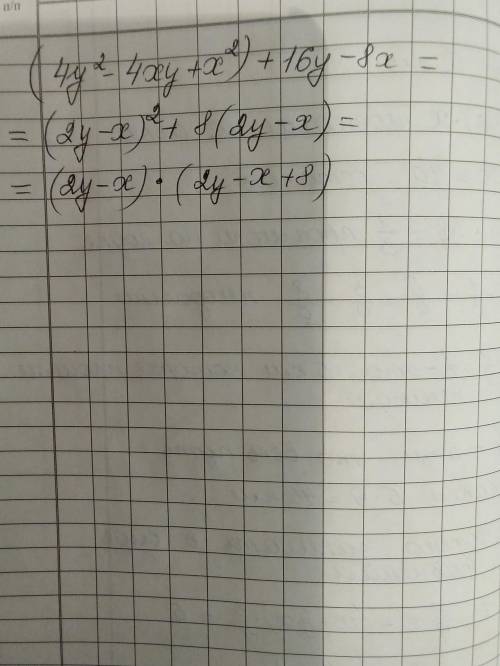 п/п
(4y²- 4xy+x²)+16y-8x =
= (2y-x)²+ 8(2y-x)=
= (2y-x)·(2y-x+8)